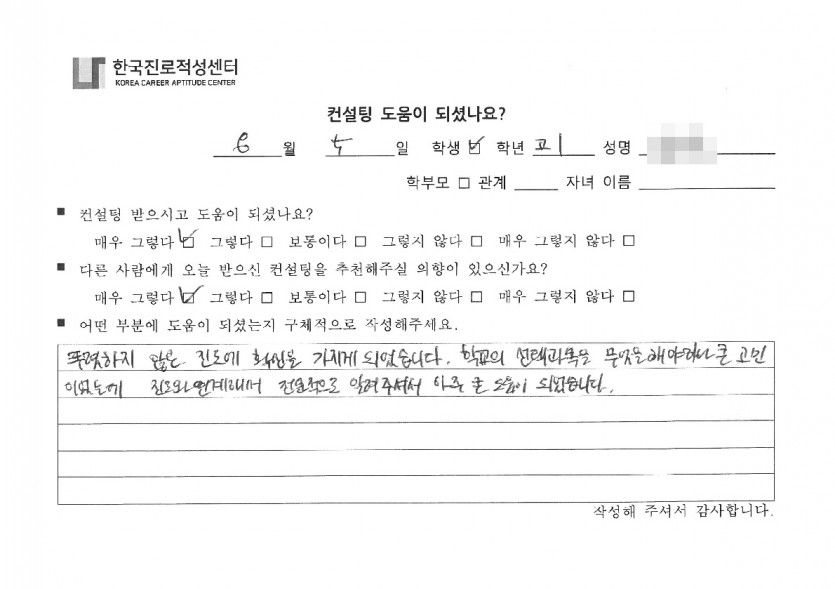 한국진로적성센터
KOREA CAREER APTITUDE CENTER
컨설팅 도움이 되셨나요?
6 월 5 일 학생 ☑ 학년 고1 성명
학부모 □ 관계 자녀 이름
■ 컨설팅 받으시고 도움이 되셨나요?
매우 그렇다 ☑ 그렇다 □ 보통이다 □ 그렇지 않다 □ 매우 그렇지 않다 □
■ 다른 사람에게 오늘 받으신 컨설팅을 추천해주실 의향이 있으신가요?
매우 그렇다 ☑ 그렇다 □ 보통이다 □ 그렇지 않다 □ 매우 그렇지 않다 □
■ 어떤 부분에 도움이 되었는지 구체적으로 작성해주세요.
뚜렷하지 않은 진로에 확신을 가지게 되었습니다. 학교의 선택과목을 무엇을 해야하나 큰 고민
이었는데 진로와 연계해서 전문적으로 알려주셔서 아주 큰 도움이 되었습니다.
작성해 주셔서 감사합니다.